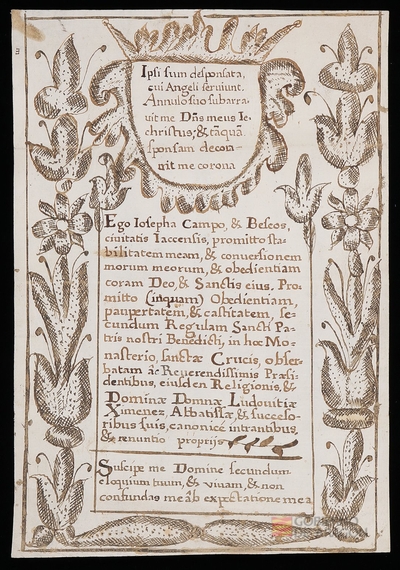 Ipsi sum desponsata,
cui Angeli serviunt.
Annulo suo subarra,
uit me Dn̄s meus Ie,
christus; & tāquā
sponsam decora-
uit me corona
Ego Iosepha Campo, & Bescos,
ciuitatis Iaccensis, promitto sta-
bilitatem meam, & conversionem
morum meorum, & obedientiam
coram Deo, & Sanctis eius. Pro-
mitto (inquam) Obedientiam,
paupertatem, & castitatem, se-
cundum Regulam Sancti Pa-
tris nostri Benedicti, in hoc Mo-
nasterio, sanctæ Crucis, obser-
batam àc Reverendissimis Præsi-
dentibus, eiusden Religionis, &
Dominæ Domnæ Ludovitiæ
Ximenez Abbatissæ, & succeso-
ribus suis, canonicé intrantibus,
& renuntio proprijs
Suscipe me Domine secundum
eloquium tuum, & vivam, & non
confundas me àb expectatione mea
GOBIERNO